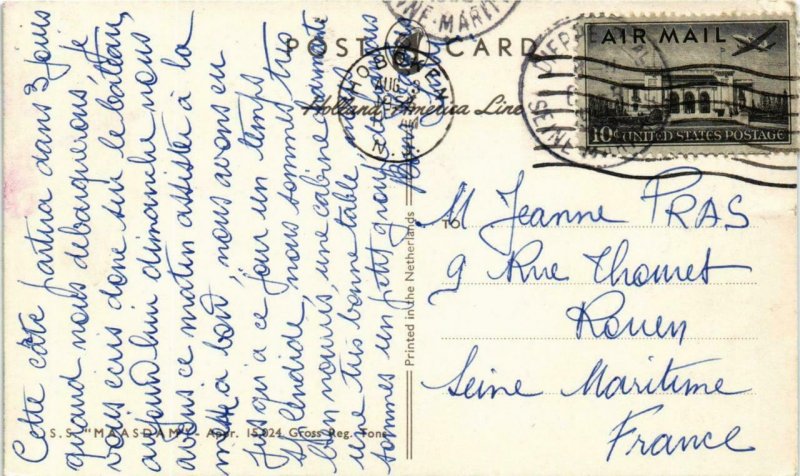 POST CARD
Holland-America Line
HOBOKEN
AUG
N.J.
DIEPPE
SEINE-MARITIME
AIR MAIL
10¢ UNITED STATES POSTAGE
Cette côte partira dans 3 jours
quand nous débarquerons. Je
vous écris donc sur le bateau,
aujourd'hui dimanche nous
avons ce matin assisté à la
messe à bord, nous avons eu
jusqu'à ce jour un temps
splendide, nous sommes très
bien nourris, une cabine
une très bonne table, nous
sommes un petit groupe
TO
M Jeanne PRAS
9 Rue Thouret
Rouen
Seine Maritime
France
Printed in the Netherlands
S.S. "MAASDAM" - Appr. 15,024 Gross Reg. Tons